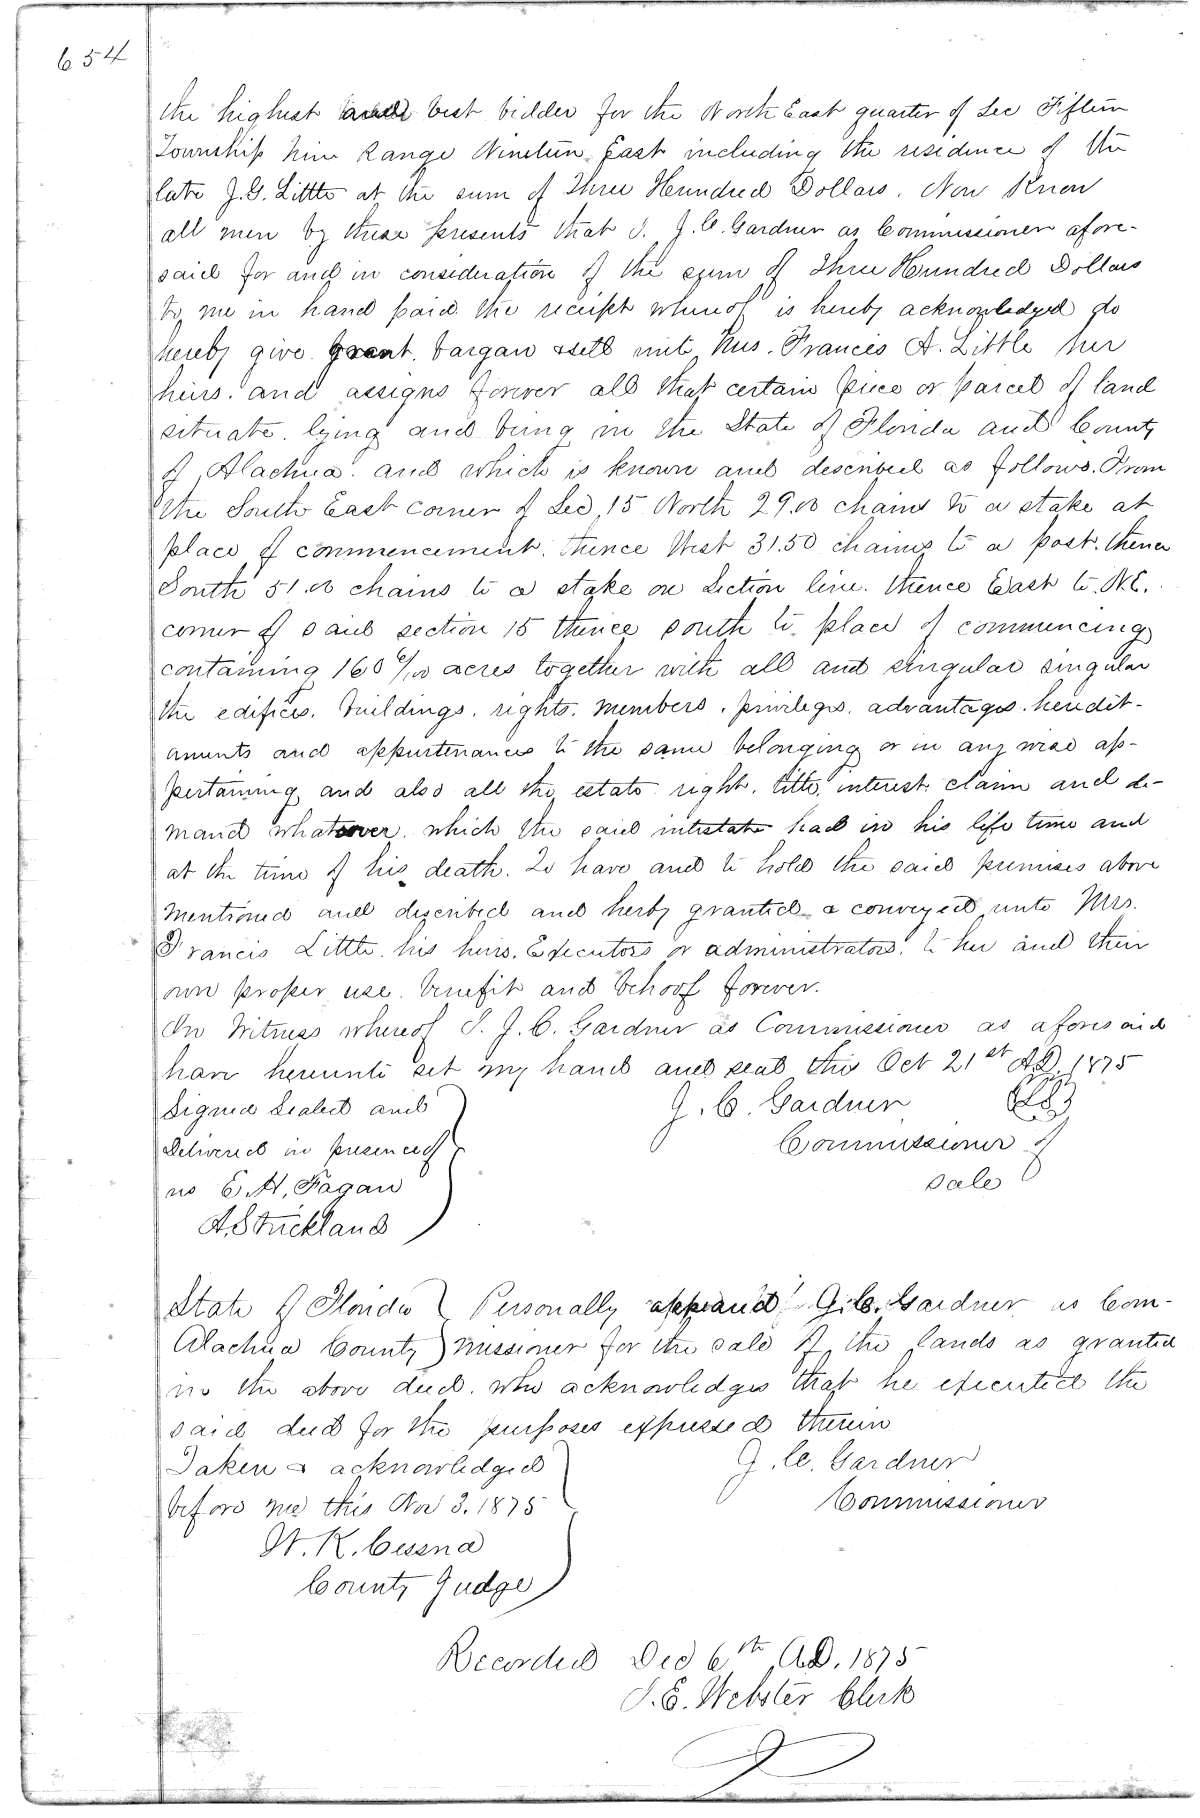 654
the highest and best bidder for the North East quarter of Sec Fifteen
Township Nine Range Nineteen East including the residence of the
late J. G. Little at the sum of Three Hundred Dollars. Now Know
all men by these presents that I. J. C. Gardner as Commissioner afore-
said for and in consideration of the sum of Three Hundred Dollars
to me in hand paid the receipt whereof is hereby acknowledged do
hereby give grant. bargan & sell unto Mrs. Francis A. Little her
heirs. and assigns forever all that certain piece or parcel of land
situate. lying and being in the State of Florida and County
of Alachua. and which is known and described as follows. From
the South East corner of Sec. 15 North 29.00 chains to a stake at
place of commencement. thence West 31.50 chains to a post. thence
South 51.00 chains to a stake on Section line. thence East to N.E.
corner of said section 15 thence south to place of commencing
containing 160 6/100 acres together with all and singular singular
the edifices. buildings. rights. members. privileges. advantages. heredit-
aments and appurtenances to the same belonging or in any wise ap-
pertaining and also all the estate right. title interest. claim and de-
mand whatsoever. which the said intestate had in his life time and
at the time of his death. To have and to hold the said premises above
mentioned and described and herby granted & conveyed unto Mrs.
Francis Little. his heirs. Executors or administrators. to her and their
own proper use. benefit and behoof forever.
In Witness whereof I. J. C. Gardner as Commissioner as aforesaid
have hereunto set my hand and seal this Oct 21st A.D. 1875
Signed Sealed and J. C. Gardner
Delivered in presence of Commissioner of
us E. H. Fagan sale
A. Strickland
State of Florida Personally appeared J. C. Gardner as Com-
Alachua County missioner for the sale of the lands as granted
in the above deed. who acknowledges that he executed the
said deed for the purposes expressed therein
Taken & acknowledged J. C. Gardner
before me this Nov 3. 1875 Commissioner
W. K. Cessna
County Judge
Recorded Dec 6th A.D. 1875
J. E. Webster Clerk